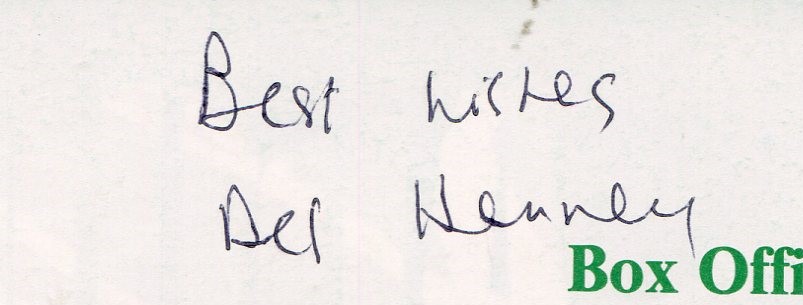 Best wishes
Del Henney
Box Offi